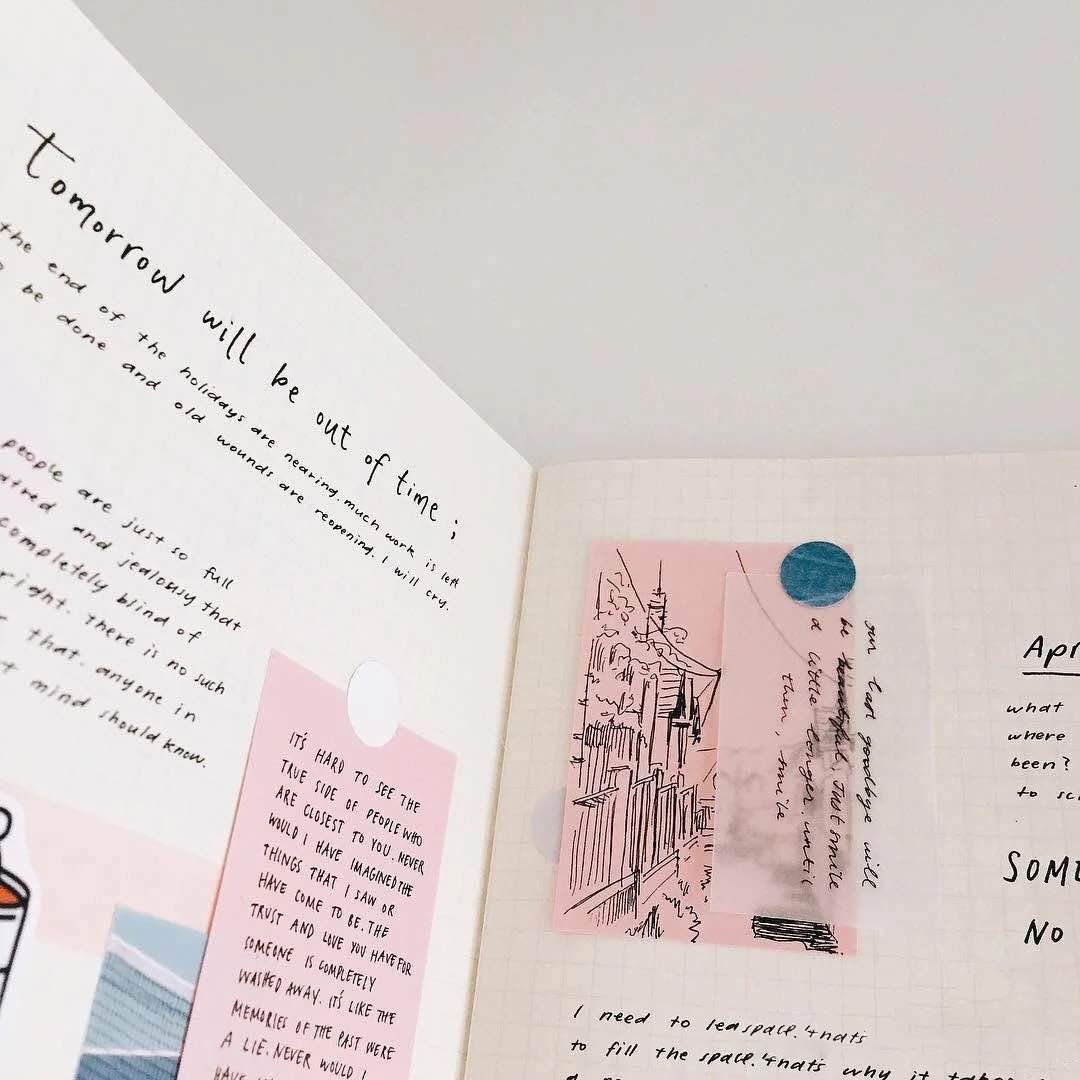 Tomorrow will be out of time ;
the end of the holidays are nearing. much work is left
be done and old wounds are reopening. I will cry.
people are just so full
and jealousy that
completely blind of
right. there is no such
that. anyone in
mind should know.
IT'S HARD TO SEE THE
TRUE SIDE OF PEOPLE WHO
ARE CLOSEST TO YOU. NEVER
WOULD I HAVE IMAGINED THE
THINGS THAT I SAW OR
HAVE COME TO BE. THE
TRUST AND LOVE YOU HAVE FOR
SOMEONE IS COMPLETELY
WASHED AWAY. IT'S LIKE THE
MEMORIES OF THE PAST WERE
A LIE. NEVER WOULD I
our last goodbye will
be beautiful. Just smile
a little longer. until
then, smile
what
where
been?
to
NO
I need to
to fill the space. thats why it